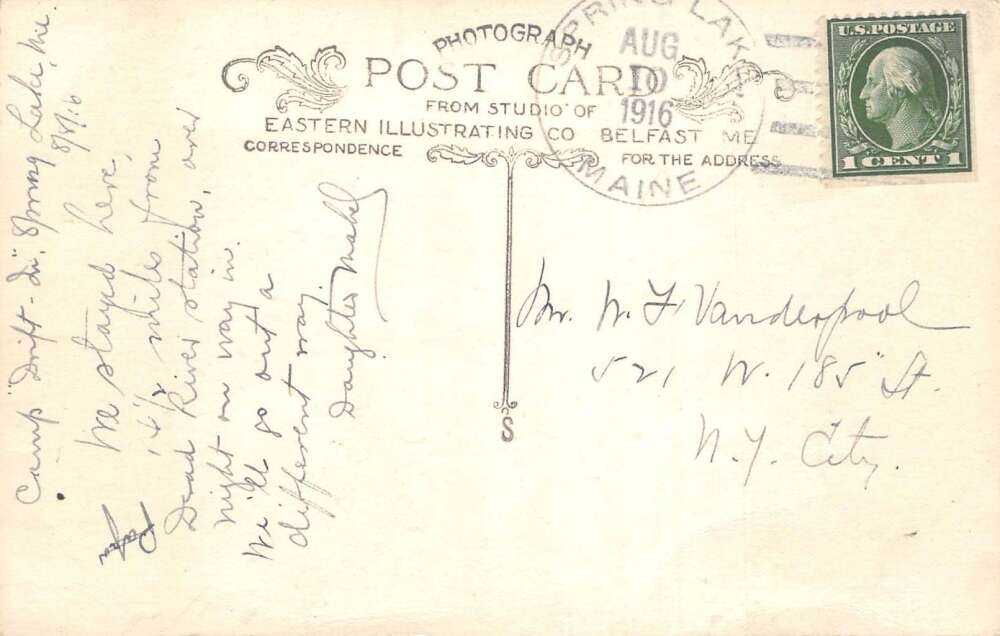 PHOTOGRAPH
POST CARD
FROM STUDIO OF
EASTERN ILLUSTRATING CO BELFAST ME
CORRESPONDENCE
FOR THE ADDRESS
SPRING LAKE
AUG
10
1916
MAINE
U.S. POSTAGE
1 CENT 1
Camp "Drift-In", Spring Lake, Me.
8/8/16
We stayed here,
miles from
Dead River station, over
night on way in.
We'll go out a
different way.
Daughter Mabel
Mr. W. F. Vanderpool
521 W. 185 St.
N.Y. City.
S